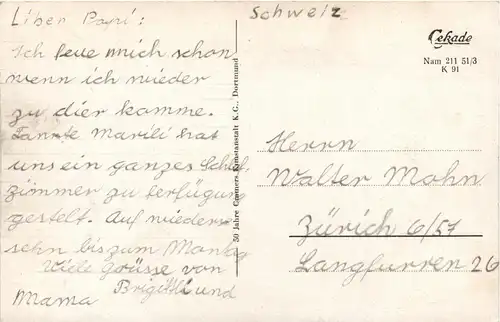 Liber Papi:
Ich feue mich schon
wenn ich wieder
zu dier komme.
Tannte Marili hat
uns ein ganzes Schlaf
zimmer zu ferfügung
gestelt. Auf wieder
sehn bis zum Montag
Viele Grüsse von
Brigitli und
Mama
50 Jahre Cramers Kunstanstalt K.G., Dortmund
Schweiz
Cekade
Nam 211 51/3
K 91
Herrn
Walter Mohn
Zürich 6/57
Langfurren 26